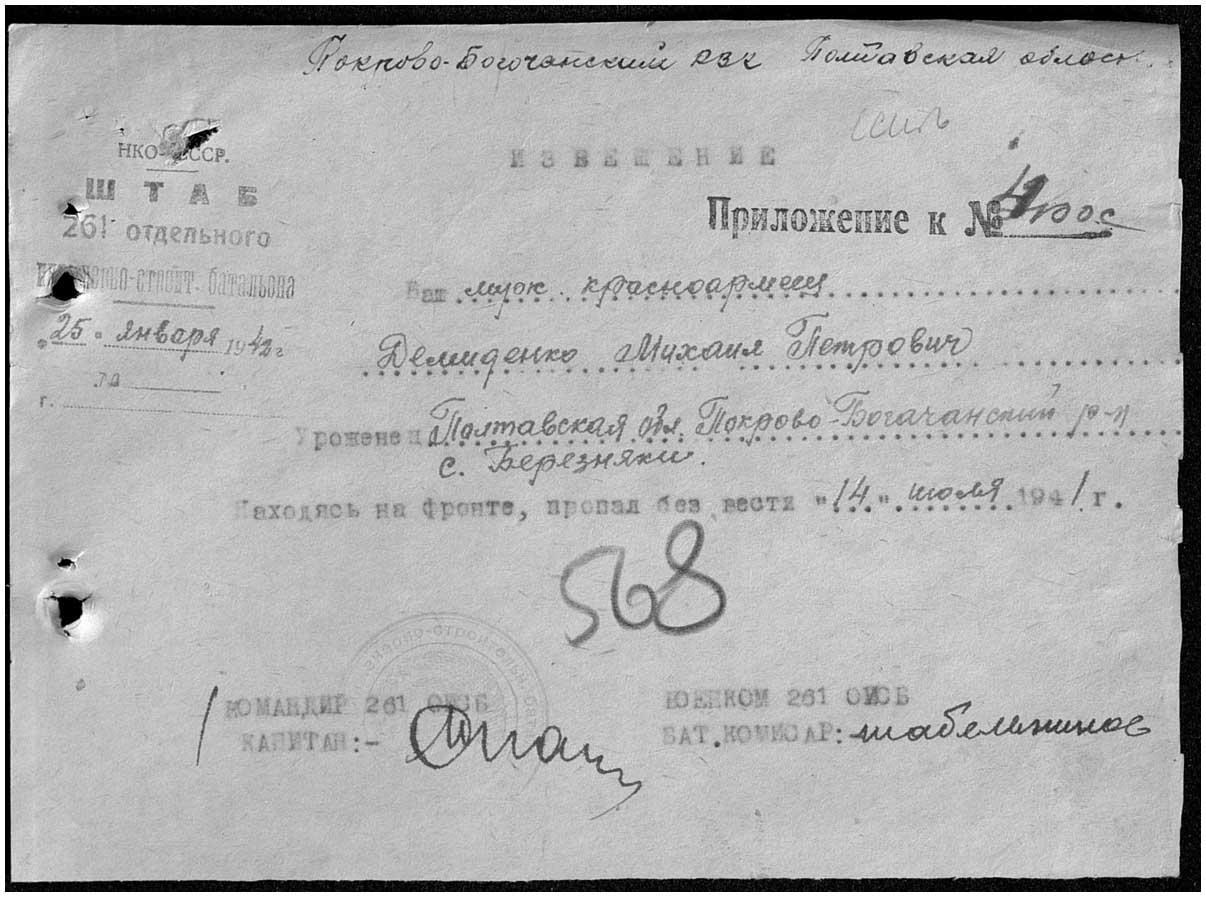 Покрово-Богочанский РВК Полтавская област.
НКО СССР.
ШТАБ
261 отдельного
инженерно-строит. батальона
"25" января 1942 г
г.
ИЗВЕЩЕНИЕ
Приложение к №
Ваш муж красноармеец
Демиденко Михаил Петрович
Уроженец Полтавская обл. Покрово-Богачанский р-н
с. Березняки.
Находясь на фронте, пропал без вести "14" июля 1941 г.
568
КОМАНДИР 261 ОИСБ
КАПИТАН:-
ВОЕНКОМ 261 ОИСБ
БАТ.КОМИССАР: